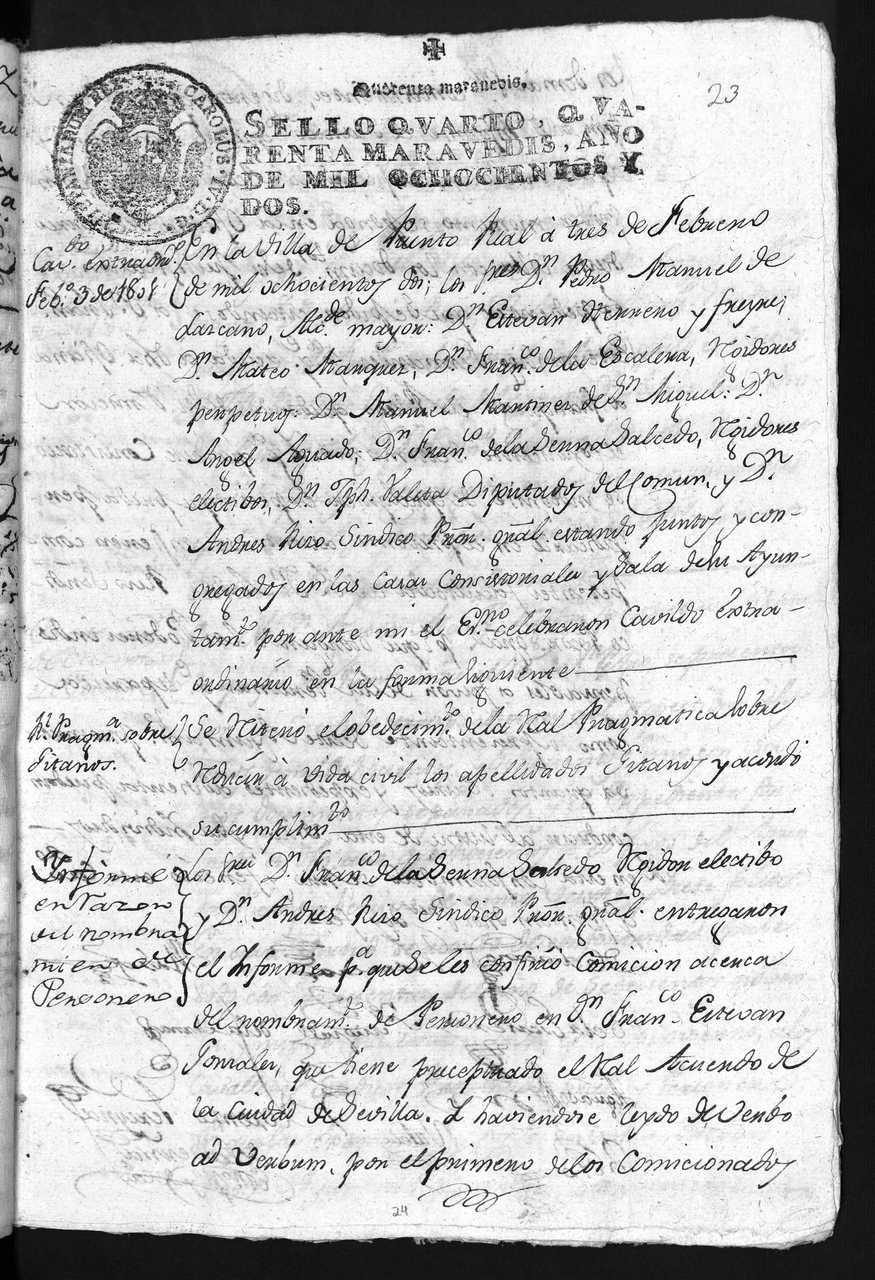 23
Quarenta maravedis.
SELLO QVARTO, QVA-
RENTA MARAVEDIS, AÑO
DE MIL OCHOCIENTOS Y
DOS.
CAROLUS IV D G HISPANIARUM REX
Cavdo. Extraordo.
Febo. 3 de 1802
En la Villa de Puerto Real à tres de Febrero
de mil ochocientos dos; los sres. Dn. Pedro Manuel de
Lazcano, Alcde. mayor: Dn. Estevan Herrero y freyre;
Dn. Mateo Marquez, Dn. Franco. de la Escalera, Rgidores
perpetuos: Dn. Manuel Martinez de Sn. Miguel: Dn.
Angel Aguado; Dn. Franco. de la Serna Salcedo, Rgidores
electibos, Dn. Jph. Valeta Diputados del Comun, y Dn.
Andres Rizo Sindico Prõr. gñal. estando juntos y con-
gregados en las Casas Consistoriales y Sala de su Ayun-
tamto. por ante mi el Esno. celebraron Cavildo Extra-
ordinario en la forma siguiente
Rl. Pragmca. sobre
Gitanos.
Se Riteró el obedecimto. de la Ral Pragmatica sobre
Rducir à vida civil los apellidados Gitanos y acordó
su cumplimto.
Informe
en razon
del nombra
miento de
Personero
Los Sres. Dn. Franco. de la Serna Salcedo Rgidor electibo
y Dn. Andres Rizo Sindico Prõr. gñal. entregaron
el Informe pa. que se les confirió Comicion acerca
del nombramto. de Personero en Dn. Franco. Estevan
Gonzalez, que tiene preceptuado el Ral Acuerdo de
la ciudad de Sevilla. Y haviendose leydo de Verbo
ad Verbum, por el primero de los Comicionados
24